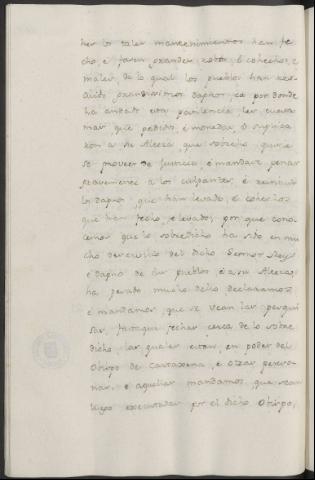 her los tales mantenimientos han fe
cho, e facen grandes robos, e cohechos, e
males, de lo qual los pueblos han res
cibido grandissimos daños, ca por donde
ha andado esta pestilencia les cuesta
mas que pedidos, e monedas, e suplica
ron a su Alteza, que sobrello quiera
se proveer de Justicia, e mandare penar
gravemente a los culpantes, e restituir
los daños, que han levado, e cohechos
que han fecho, e levado; por que cono
cemos que lo sobredicho ha sido en mu
cho deservicio del dicho Sennor Rey,
e dapno de sus pueblos, e a su Alteza
ha pesado mucho dello, declaramos,
e mandamos, que se vean las pesqui
sas, fasta qui fechas, cerca de lo sobre
dicho, las quales estan en poder del
Obispo de Cartaxena, e otras perso
nas, e aquellas mandamos, que sean
luego executadas por el dicho Obispo,